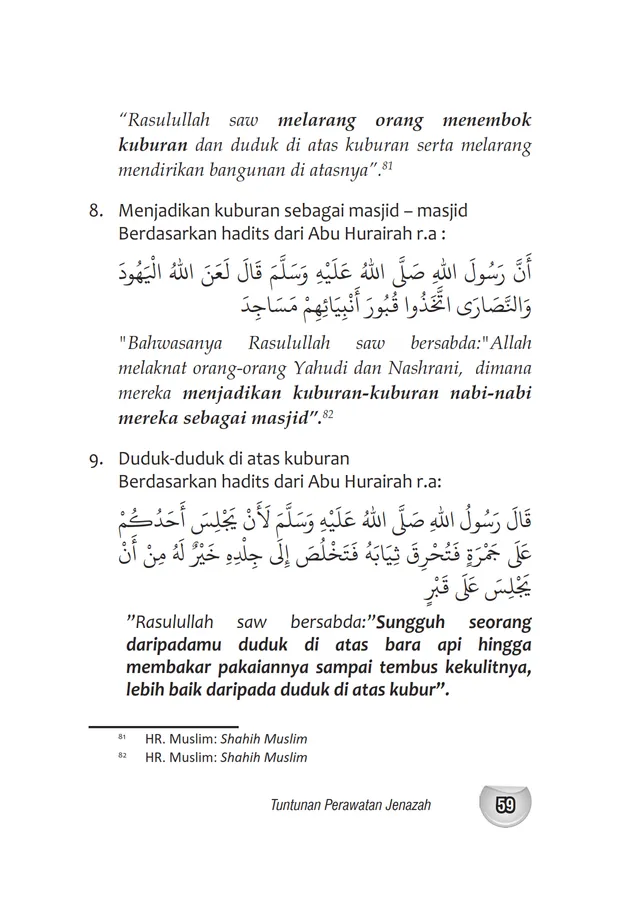 “Rasulullah saw melarang orang menembok
kuburan dan duduk di atas kuburan serta melarang
mendirikan bangunan di atasnya”.81
8. Menjadikan kuburan sebagai masjid – masjid
Berdasarkan hadits dari Abu Hurairah r.a :
أَنَّ رَسُولَ اللهِ صَلَّى اللهُ عَلَيْهِ وَسَلَّمَ قَالَ لَعَنَ اللهُ الْيَهُودَ
وَالنَّصَارَى اتَّخَذُوا قُبُورَ أَنْبِيَائِهِمْ مَسَاجِدَ
"Bahwasanya Rasulullah saw bersabda:"Allah
melaknat orang-orang Yahudi dan Nashrani, dimana
mereka menjadikan kuburan-kuburan nabi-nabi
mereka sebagai masjid”.82
9. Duduk-duduk di atas kuburan
Berdasarkan hadits dari Abu Hurairah r.a:
قَالَ رَسُولُ اللهِ صَلَّى اللهُ عَلَيْهِ وَسَلَّمَ لَأَنْ يَجْلِسَ أَحَدُكُمْ
عَلَى جَمْرَةٍ فَتُحْرِقَ ثِيَابَهُ فَتَخْلُصَ إِلَى جِلْدِهِ خَيْرٌ لَهُ مِنْ أَنْ
يَجْلِسَ عَلَى قَبْرٍ
”Rasulullah saw bersabda:”Sungguh seorang
daripadamu duduk di atas bara api hingga
membakar pakaiannya sampai tembus kekulitnya,
lebih baik daripada duduk di atas kubur”.
81 HR. Muslim: Shahih Muslim
82 HR. Muslim: Shahih Muslim
Tuntunan Perawatan Jenazah 59